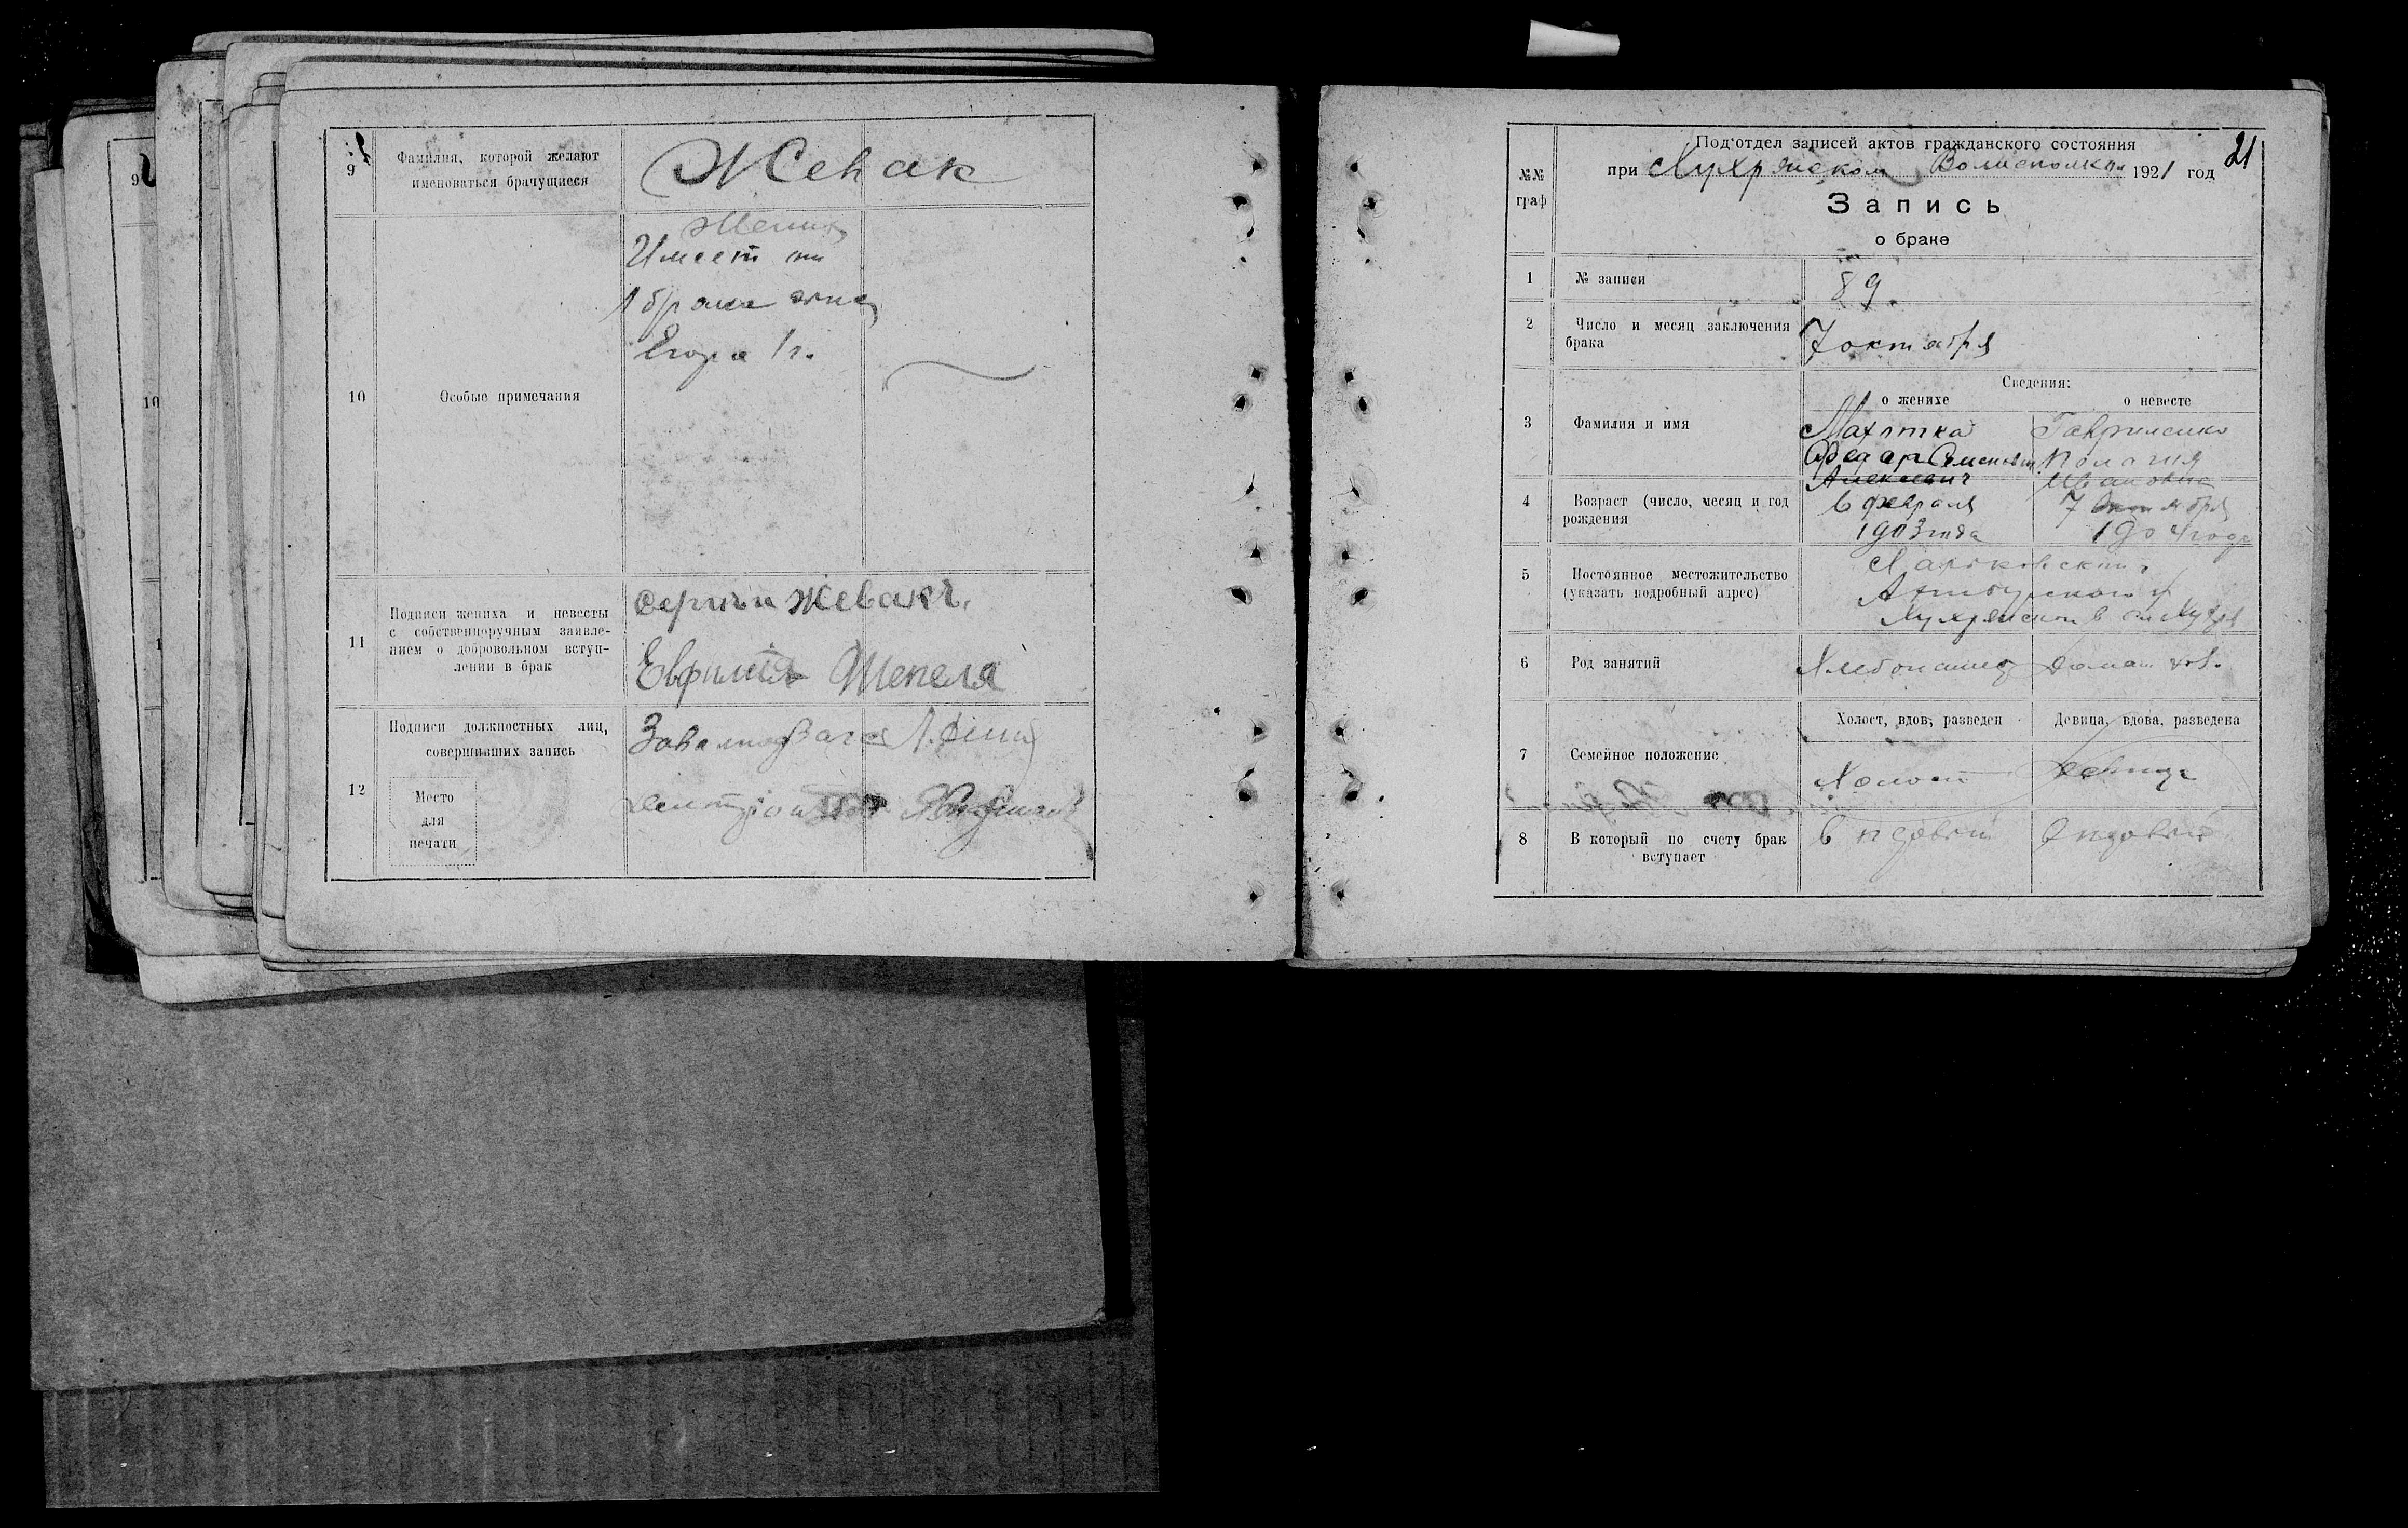 9
Фамилия, которой желают
именоваться брачущиеся
Жевак
10
Особые примечания
Жених
Имеет
1 брака сына
Егора 1 г.
11
Подписи жениха и невесты
с собственноручным заявле-
нием о добровольном вступ-
лении в брак
Жевакъ
Евфимия Шепеля
12
Подписи должностных лиц,
совершивших запись
Место
для
печати
21
№№
граф
Под'отдел записей актов гражданского состояния
при Хухрянском Волисполкоме 1921 год
Запись
о браке
1
№ записи
89
2
Число и месяц заключения
брака
7 октября
Сведения:
о женихе
о невесте
3
Фамилия и имя
Махотка
Федор Семенович
Алексеевич
Гавриленко
Полагия
Ивановна
4
Возраст (число, месяц и год
рождения
6 февраля
1903 года
7 Октября
1904 года
5
Постоянное местожительство
(указать подробный адрес)
Харьковской
Ахтырского у
Хухрянской в
6
Род занятий
Хлебопашец
Домаш. хоз.
7
Семейное положение
Холост, вдов, разведен
Девица, вдова, разведена
Холост
Девица
8
В который по счету брак
вступает
в первый
в первый